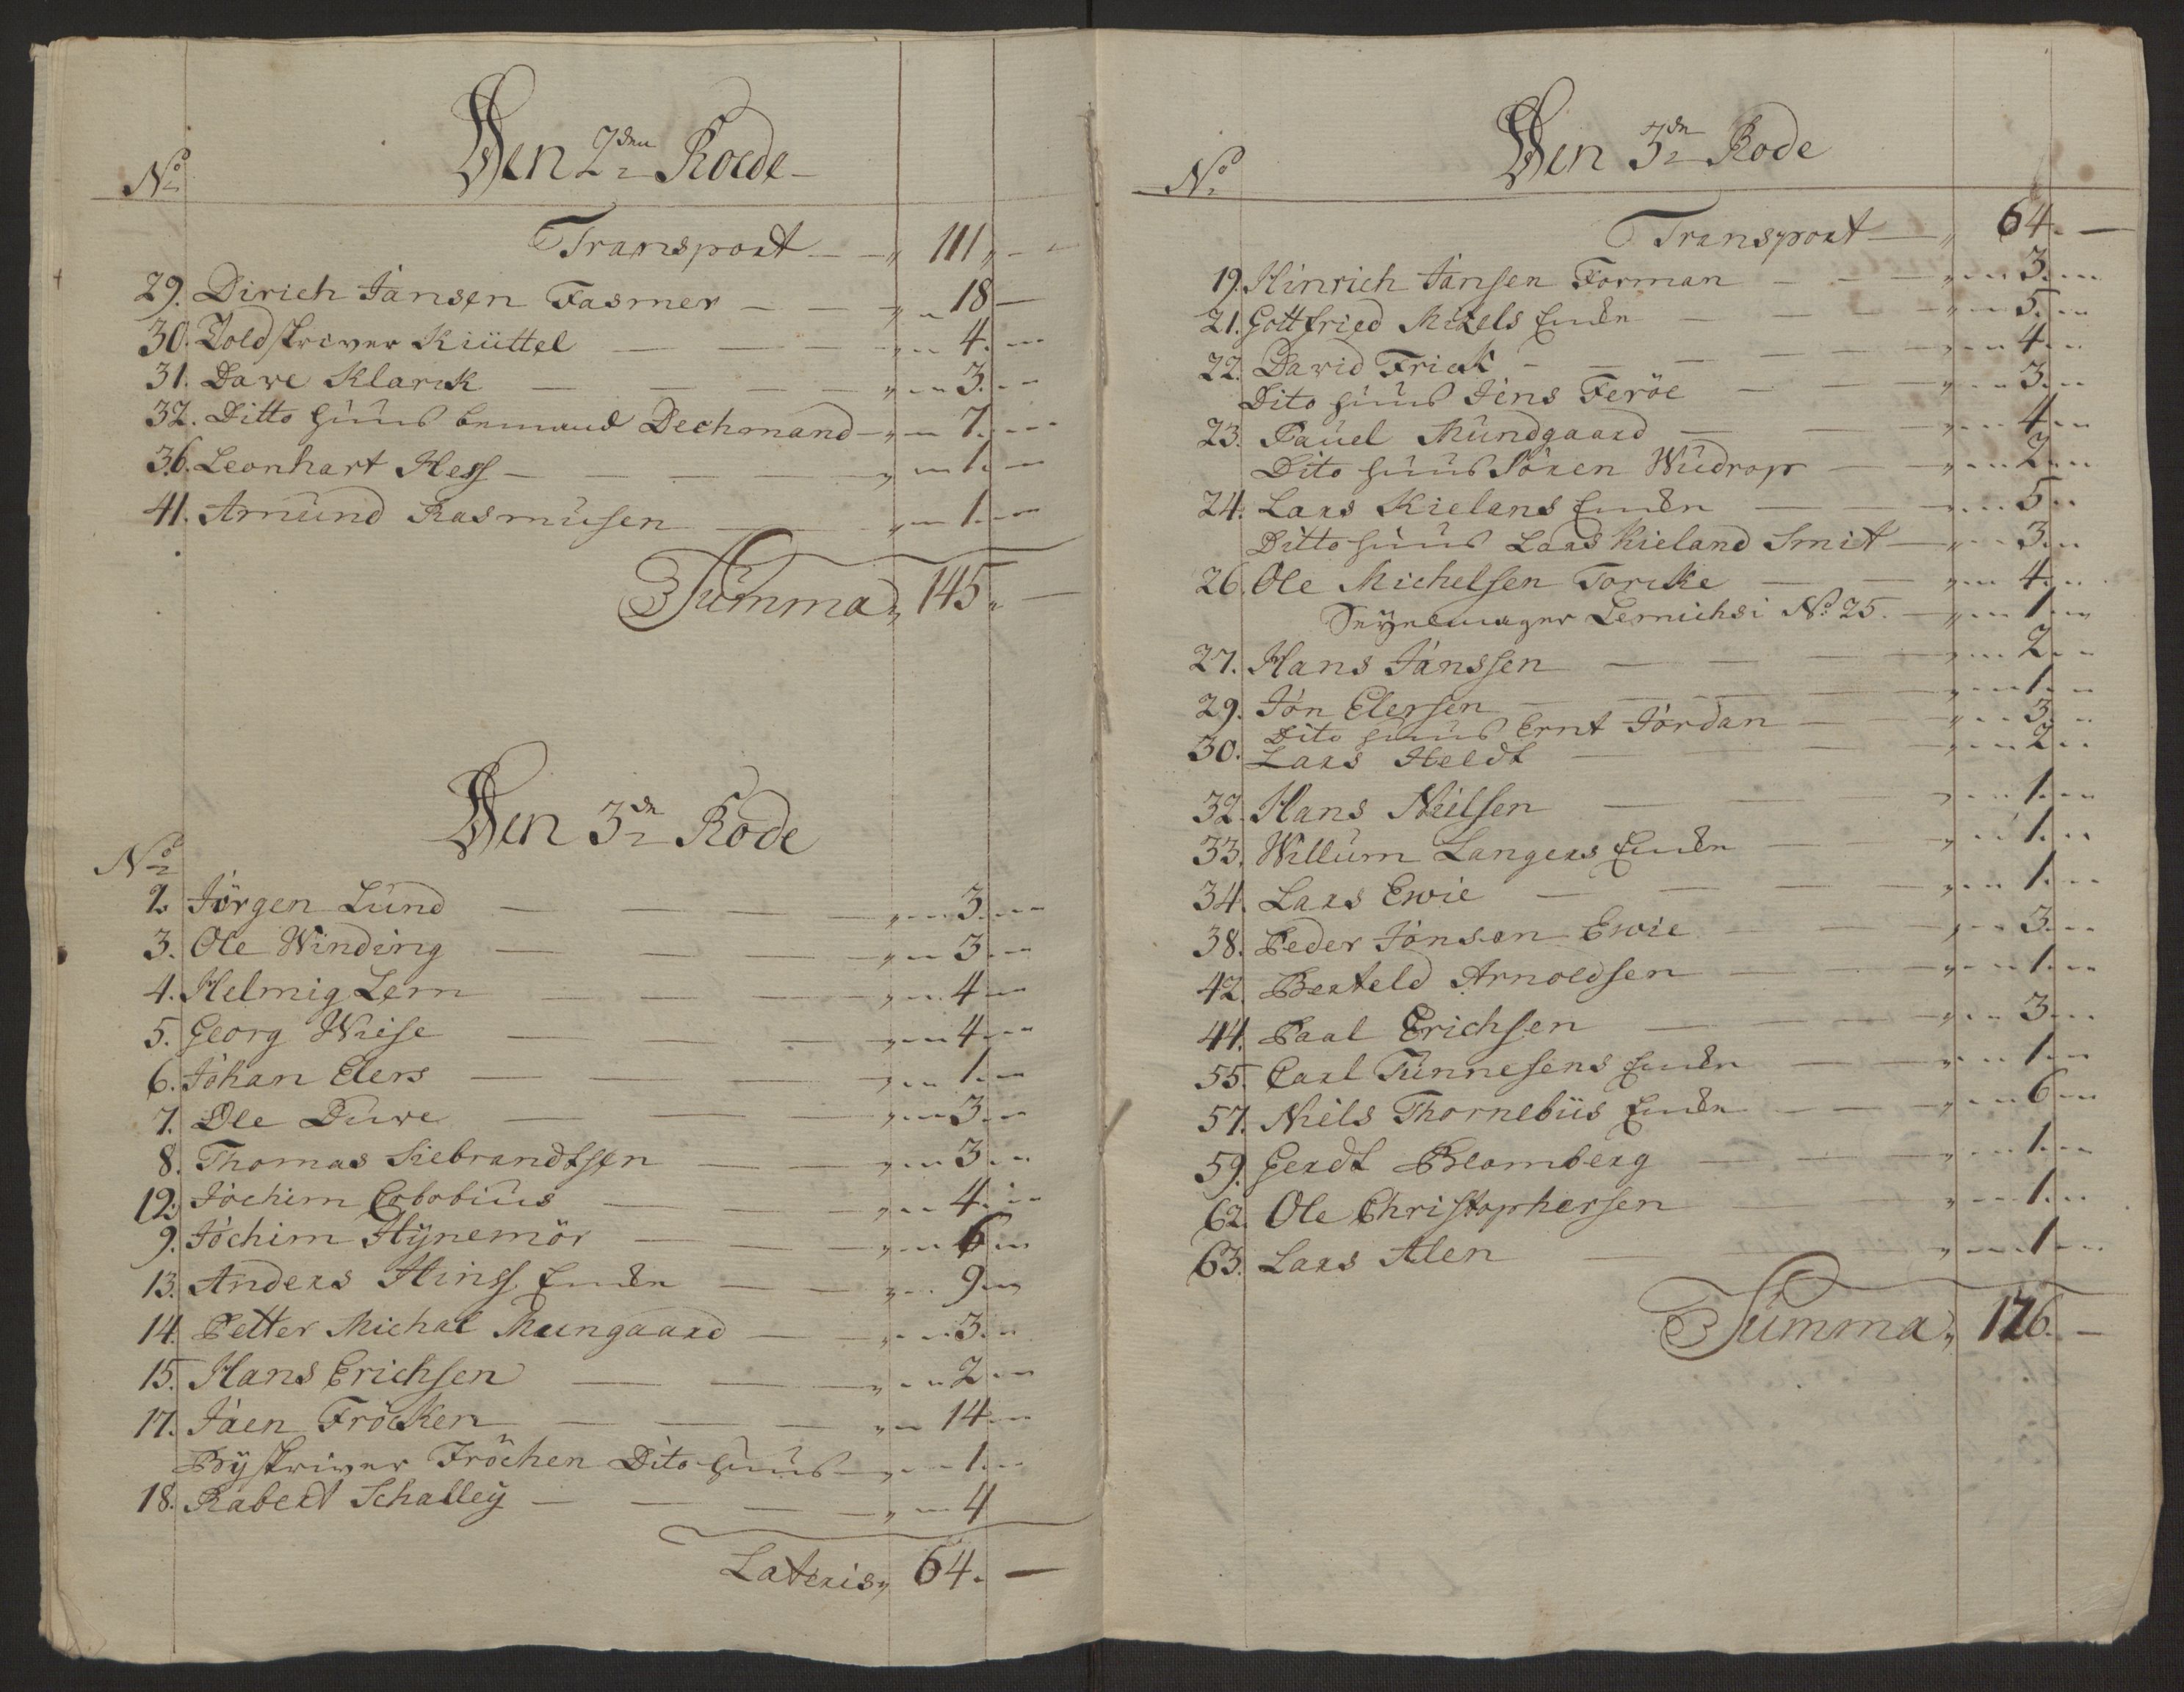 Den 2den Roede
No
Transport 111
29. Dirich Jansen Fasmer 18
30. Toldskriver Küttel 4.
31. Dave Klarck 3.
32. Ditto huus Dechmand 7.
36. Leonhart Hess 1.
41. Amund Rasmusen 1.
Summa 145.
Den 3de Rode
No
2. Jörgen Lund 3.
3. Ole Winding 3.
4. Helmig Lem 4
5. Georg Wiese 4.
6. Johan Elers 1.
7. Ole Duwe 3.
8. Thomas Siebrandtsen 3.
12. Jochim Cobobius 4.
9. Jochim Hynemör 6
13. Anders Hinss Enden 9
14. Petter Michal Mungaard 3.
15. Hans Erichsen 2
17. Jaen Fröcken 14
Byskriver Fröchen Dito huus 1.
18. Rabert Schalley 4
Lateris 64.
Den 3de Rode
No
Transport 64.
19. Hinrich Jansen Forman 3.
21. Gottfried Mizels Enden 5.
22. David Frick 4.
Dito huus Jens Feröe 3.
23. Pauel Mundgaard 4
Dito huus Sören Wüdrop 2.
24. Lars Kielans Enden 5
Ditto huus Lars Kieland Smit 3.
26. Ole Michelsen Torcke 4.
Seyelmager Lemichsi No 25. 1.
27. Hans Janssen 2.
29. Jon Elersen 1.
Dito huus Ernt Jordan 3.
30. Lars Heldt 2
32. Hans Nielsen 1.
33. Willum Langers Enden 1.
34. Lars Ewie 1.
38. Peder Jonsen Ewie 3.
42. Berteld Arnoldsen 1.
44. Paal Erichsen 3.
55. Carl Tünnesens Enden 1.
57. Niels Thornebüs Enden 6
59. Gerdt Blomberg 1.
62. Ole Christophersen 1.
63. Lars Alen 1
Summa 126.